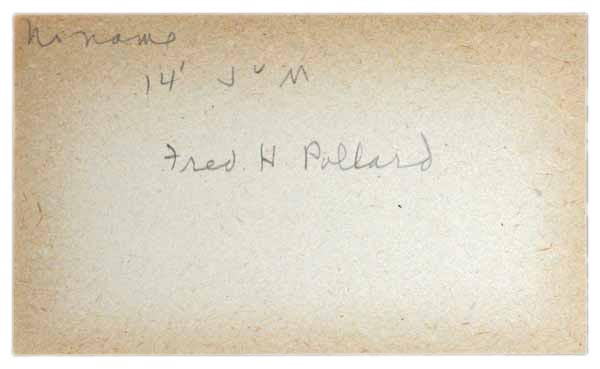 No name
14'
Fred H Pollard